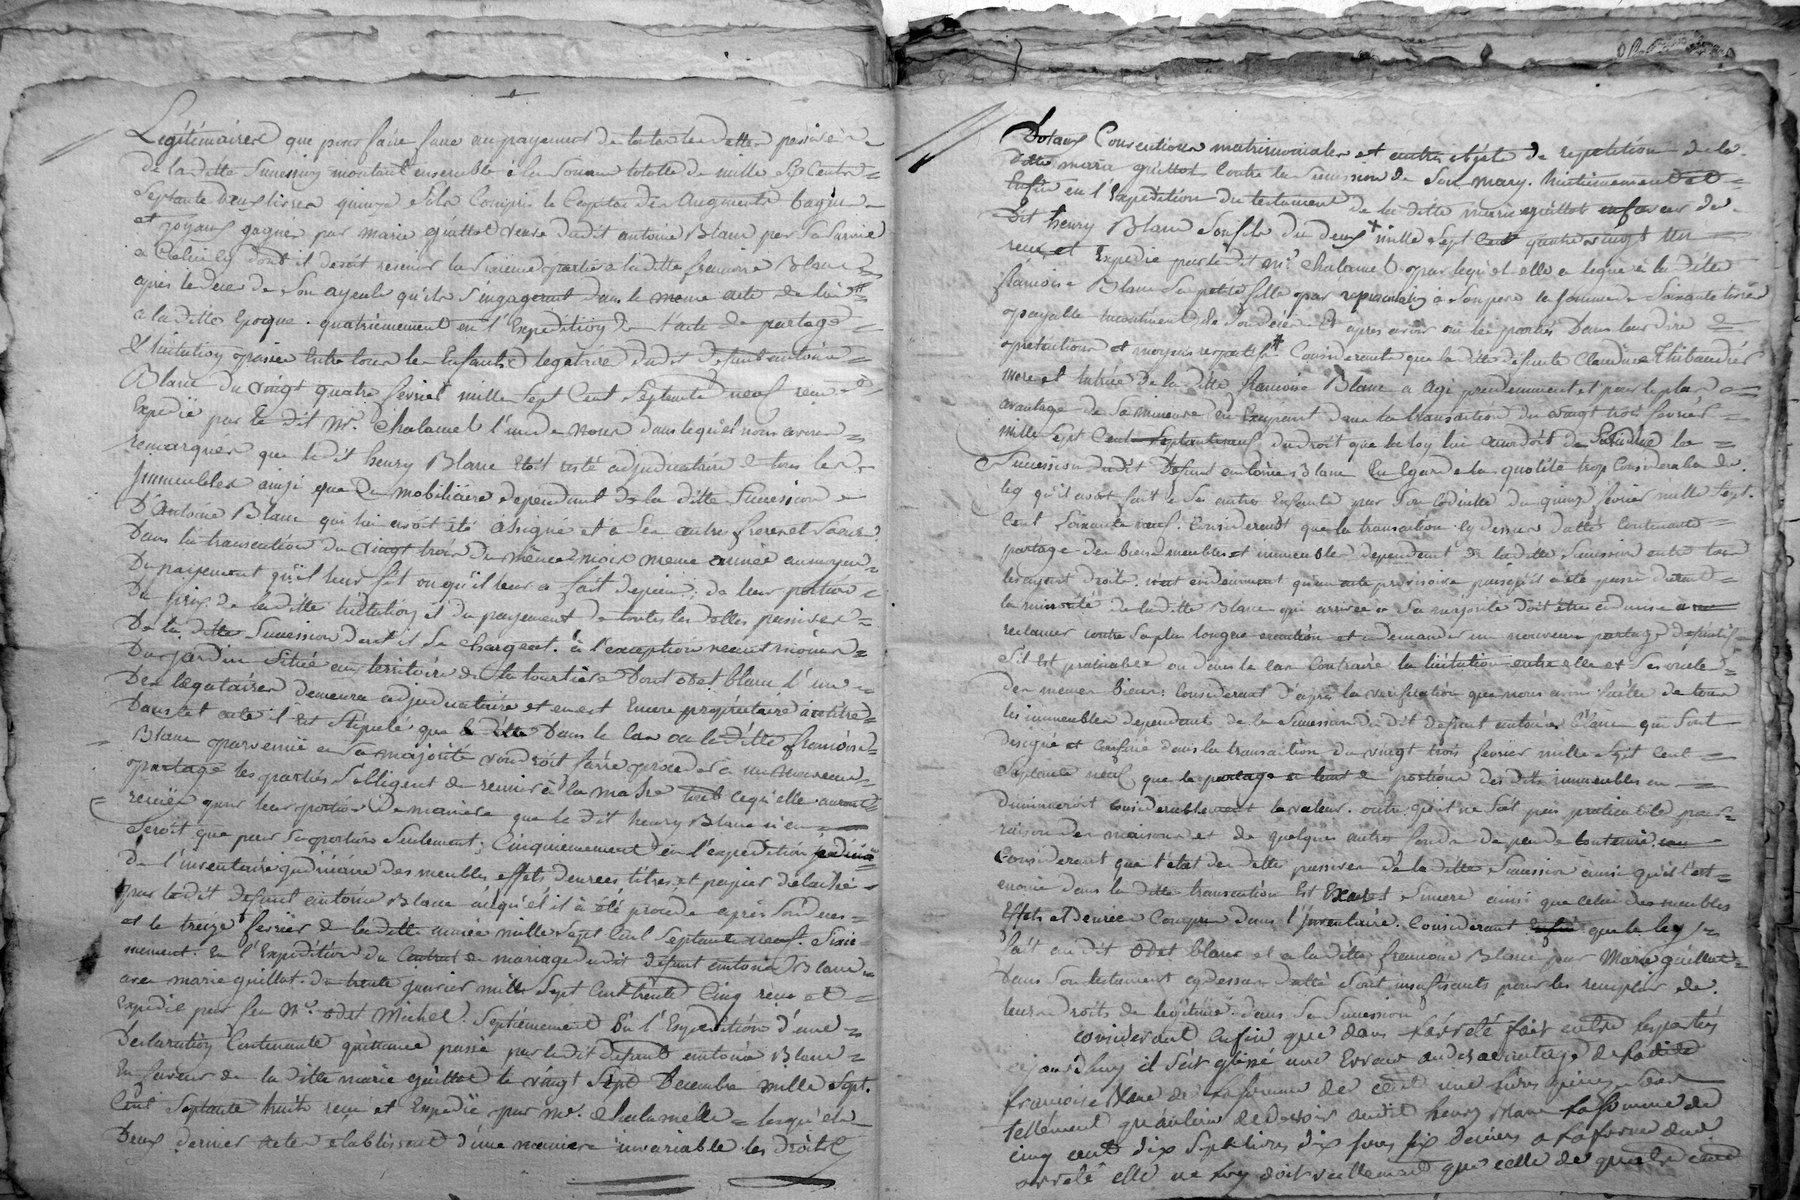 Legitimaires que pour faire face au payement de toutes les dettes passives
de la ditte succession montant ensemble à la somme totalle de mille six cents
septante deux livres quinze sols compris le capital des augments bagues
et joyaux gagnés par marie guillot veuve dudit antoine Blanc par sa survie
a celui cy dont il devoit revenir la sixieme partie a la ditte francoise Blanc
apres le deces de son ayeule qu'ils s'engagerent dans le meme acte de lui
a la ditte Epoque. quatriemement en l'Expedition de l'acte de partage
& licitation passée entre tous les Enfants legataire dudit defunt antoine
Blanc du vingt quatre fevrier mille sept cent septante neuf reçu &
Expedié par le dit Mr. Chalamel l'un de nous dans lequel nous avons
remarqués que ledit henry Blanc étoit resté adjudicataire de tous les
Immeubles ainsi que du mobiliaire dependant de la ditte succession
D'antoine Blanc qui lui avoit été assigné et a ses autres freres et soeurs
Dans la transaction du vingt trois du même mois meme année au moyen
Du payement qu'il leur fit ou qu'il leur a fait depuis de leur portion
Du prix de la ditte licitation et du payement de toutes les dettes passives
De la ditte succession dont il se chargeat. à l'exception neantmoins
Du jardin situé au territoire de la tourtiere dont odet blanc l'un
Des legataires demeura adjudicataire et en est Encore proprietaire
Dans cet acte il Est stipulé que Dans le cas ou la ditte francoise
Blanc parvenüe a sa majorité voudroit faire proceder à un nouveau
partage les parties s'obligent de remettre à la masse tout ce qu'elle auront
reçüe pour leur portion De maniere que le dit henry Blanc n'en
seroit que pour sa portion seulement; Cinquiemement en l'expedition
De l'inventaire des meubles effets denrees titres et papier delaissé
par le dit defunt antoine Blanc auquel il a été procedé apres son deces
et le treize fevrier de la ditte année mille sept cent septante neuf. Sixie-
mement. En l'Expedition du Contrat de mariage dudit defunt antoine Blanc
avec marie guillot du trente janvier mille sept cent trente cinq reçu et
expedié par feu Mr. odet Michel. Septiemement En l'Expedition d'une
Declaration Contenante quittance passée par le dit defunt antoine Blanc
En faveur de la ditte marie guillot le vingt sept Decembre mille sept
Cent septante huit reçu et Expedié par Mr. Chalamel lesquels
Deux dernier actes etablissent d'une maniere invariable les droits
Dotaux Conventions matrimoniales et autres objets de repetition de la
ditte marie guillot Contre la succession de son mary.
Enfin en l'Expedition du testament de la ditte marie guillot en faveur de
Dit henry Blanc son fils du deux mille sept cent quatre vingt un
reçu et Expedié par le dit Mr. Chalamel par lequel elle a legué à la ditte
francoise Blanc sa petite fille par representation à son pere la somme de soixante livres
payable incontinent de son deces Et apres avoir oui les parties Dans leur dire
pretentions et moyens respectifs Considerants que la ditte defunte Claudine Thibaudier
mere et tutrice de la ditte francoise Blanc a agi prudemment et pour le plus
avantage de sa mineure en Exupant dans la transaction du vingt trois fevrier
mille sept Cent septante neuf du droit que la loy lui accordoit
Succession dudit Defunt antoine Blanc En Egard a la quotité trop Considerable de
leg qu'il avoit fait a ses autres Enfants par son codicille du quinze fevrier mille sept
Cent soixante neuf. Considerent que la transaction cy dessus datté contenant
partage des biens meubles et immeubles dependent de la ditte succession entre tous
les ayant droits n'est evidemment qu'un acte provisoire puisqu'il a été passé durant
la minorité de la ditte Blanc qui arrivée a sa majorité doit être admise a
reclamer contre sa plus longue execution et a demander un nouveau partage definitif
s'il Est praticable ou dans le cas Contraire la licitation entre elle et ses oncles
des memes biens: Considerant d'apres la verification que nous avons faites de tous
les immeubles dependants de la succession du dit defunt antoine Blanc qui sont
designé et confiné dans la transaction du vingt trois fevrier mille sept cent
septante neuf que le partage de portions desdits immeubles en
Diminueroit Considerablement la valeur. outre qu'il ne soit pas praticable par
raison des maisons et de quelques autres fonds de peu de contenue.
Considerant que l'etat des dettes passives de la ditte succession ainsi qu'il Est
enoncé dans la ditte transaction Est Exact et sincere ainsi que celui des meubles
Effets et denrées Compris dans l'Inventaire. Considerant que le leg
fait audit odet blanc et a la ditte francoise Blanc par Marie guillot
Dans son testament cy dessus datté sont insuffisants pour les remplir de
leurs droits de legitime dans sa succession
considerant Enfin que dans l'arreté fait entre les parties
aujourd'huy il s'est glissé une Erreur au desavantage de la dite
francoise Blanc de la somme de cent une livres
tellement qu'au lieu de devoir audit henry Blanc la somme de
cinq cent dix sept livres dix sous six deniers a la forme dud
arreté elle ne luy doit reellement que celle de quatre cent